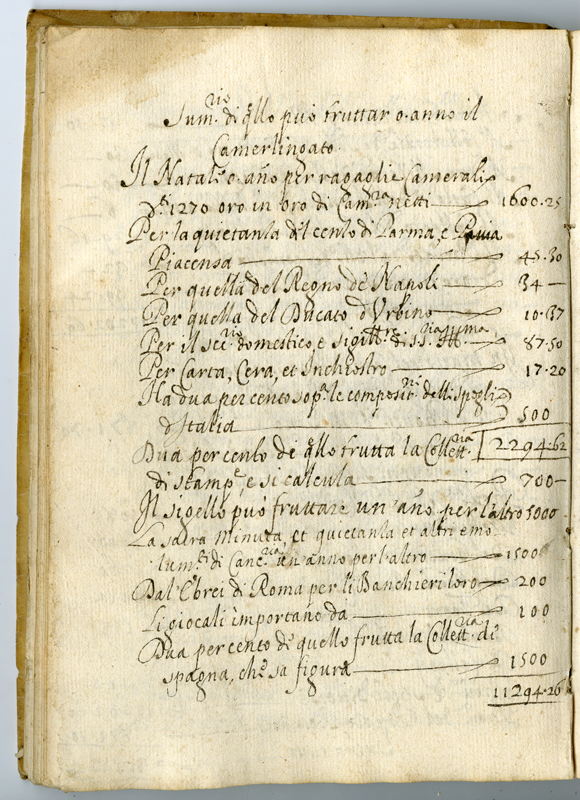 Sum.rio di q̃llo può fruttar o. anno il
Camerlingato.
Il Natal: o. año per ragaglie Camerali
di 1270 oro in oro di Cam.ra netti 1600.25
Per la quietanza del cento di Parma, e Pavia
Piacensa 45.30
Per quella del Regno de Napoli 34 —
Per quella del Ducato d'Urbino 10.37
Per il sci.rio domestico, e sigill.re di S.S. Ill.ma 87.50
Per Carta, Cera, et Inchiostro 17.20
Ha dua per cento sop.a le composit.ni delli spoglij
d'Italia 500
Dua per cento de q̃llo frutta la Collett.ria 2294.62
di stamp.e, e si calcula 700 —
Il sigello può fruttare un' año per l'altro 5000
La sacra minuta, et quietanza et altri emo-
lum.ti di Canc.ria un' anno per l'altro 1500
Dal Ebrei di Roma per li Banchieri loro 200
Li giocali importano da 100
Dua per cento de quello frutta la Collett.ria di
spagna, che sa figura 1500
11294.26